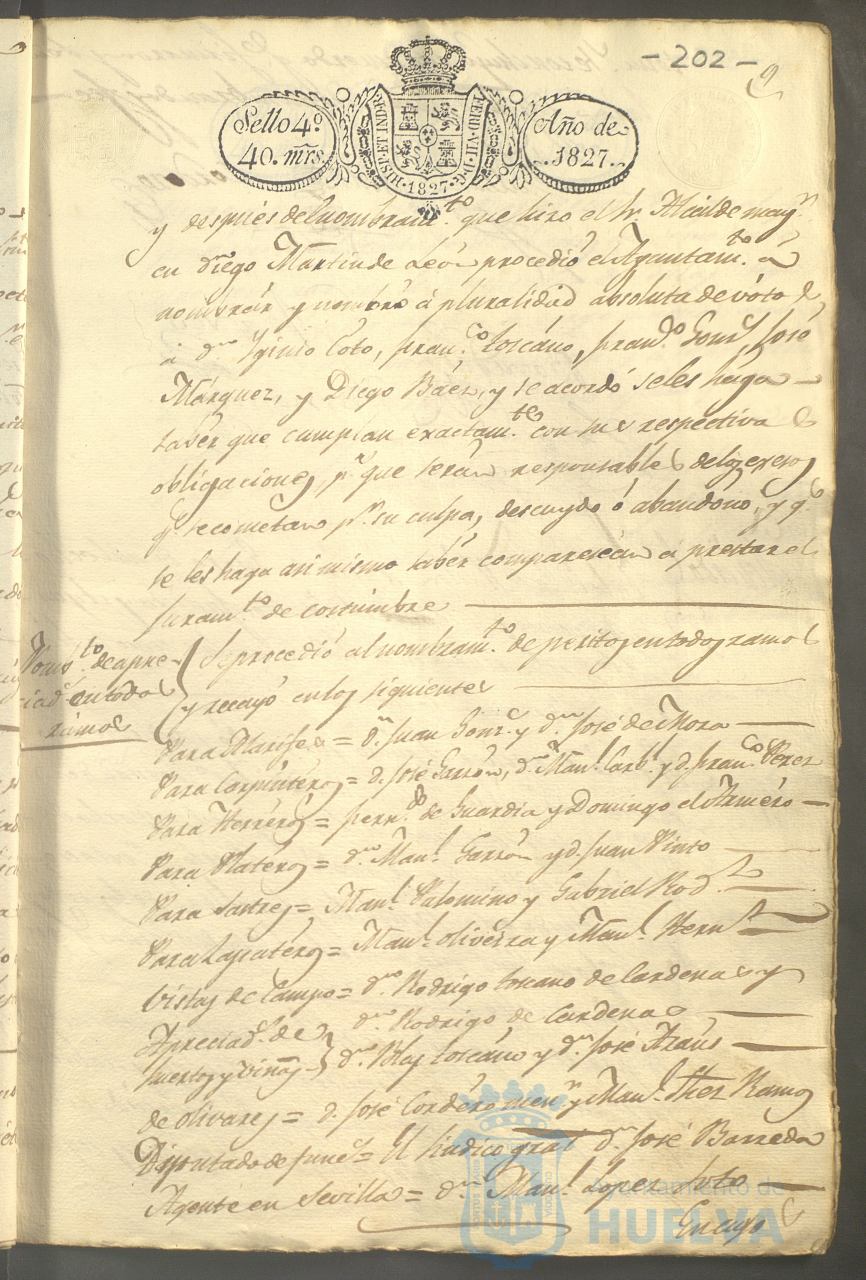 - 202 -
Sello 4º
40. mrs.
HISP. ET IND. R.
FERD. VII. D. G.
1827
Año de
1827.
y despues del nombram.to que hizo el Sr. Alcalde may.r
en Diego Martin de Leon procedió el Ayuntam.to á
nombrár y nombró á pluralidad absoluta de vótos
á d.n Iginio Coto, fran.co toscáno, fran.co Gonz.z José
Márquez, y Diego Báez, y se acordó se les hága
saber que cumplan exactam.te con sus respectivas
obligaciones, p.r que serán responsables de los excesos
q.e se cometan p.r su culpa, descuydo ó abandono, y q.e
se les haga asi mismo sabér comparescán á prestar el
juram.to de costumbre
Nomb.to de apre-
ciad.s en todos
rámos
Se procedió al nombram.to de peritos en todos ramos
y recayó en los siguientes
Para Alarifes = d.n Juan Gonz.z y d.n José de Mora
Para Carpintéros = d. José Garrón, d.n Man.l Carb.l y d. fran.co Perez
Para Herréros = fern.do de Guardia y Domingo el Arméro
Para Platéros = d.n Man.l Garrón y d. Juan Pinto
Para Sastres = Man.l Palomino y Gabriel Rod.z
Para Zapatéros = Man.l olivéira y Man.l Hern.z
Vistas de Campo = d.n Rodrigo toscano de Cardenas y
d.n Rodrigo de Cardenas
Apreciad.s de
huertas y viñas
d.n Blas toscáno y d.n José Araus
de olivares = d. José Cordéro men.r y Man.l Ramos
Diputado de func.s = El Sindico gral d.n José Barreda
Agente en Sevilla = d.n Man.l Lopez Soto
En cuyo
Ayuntamiento de
HUELVA